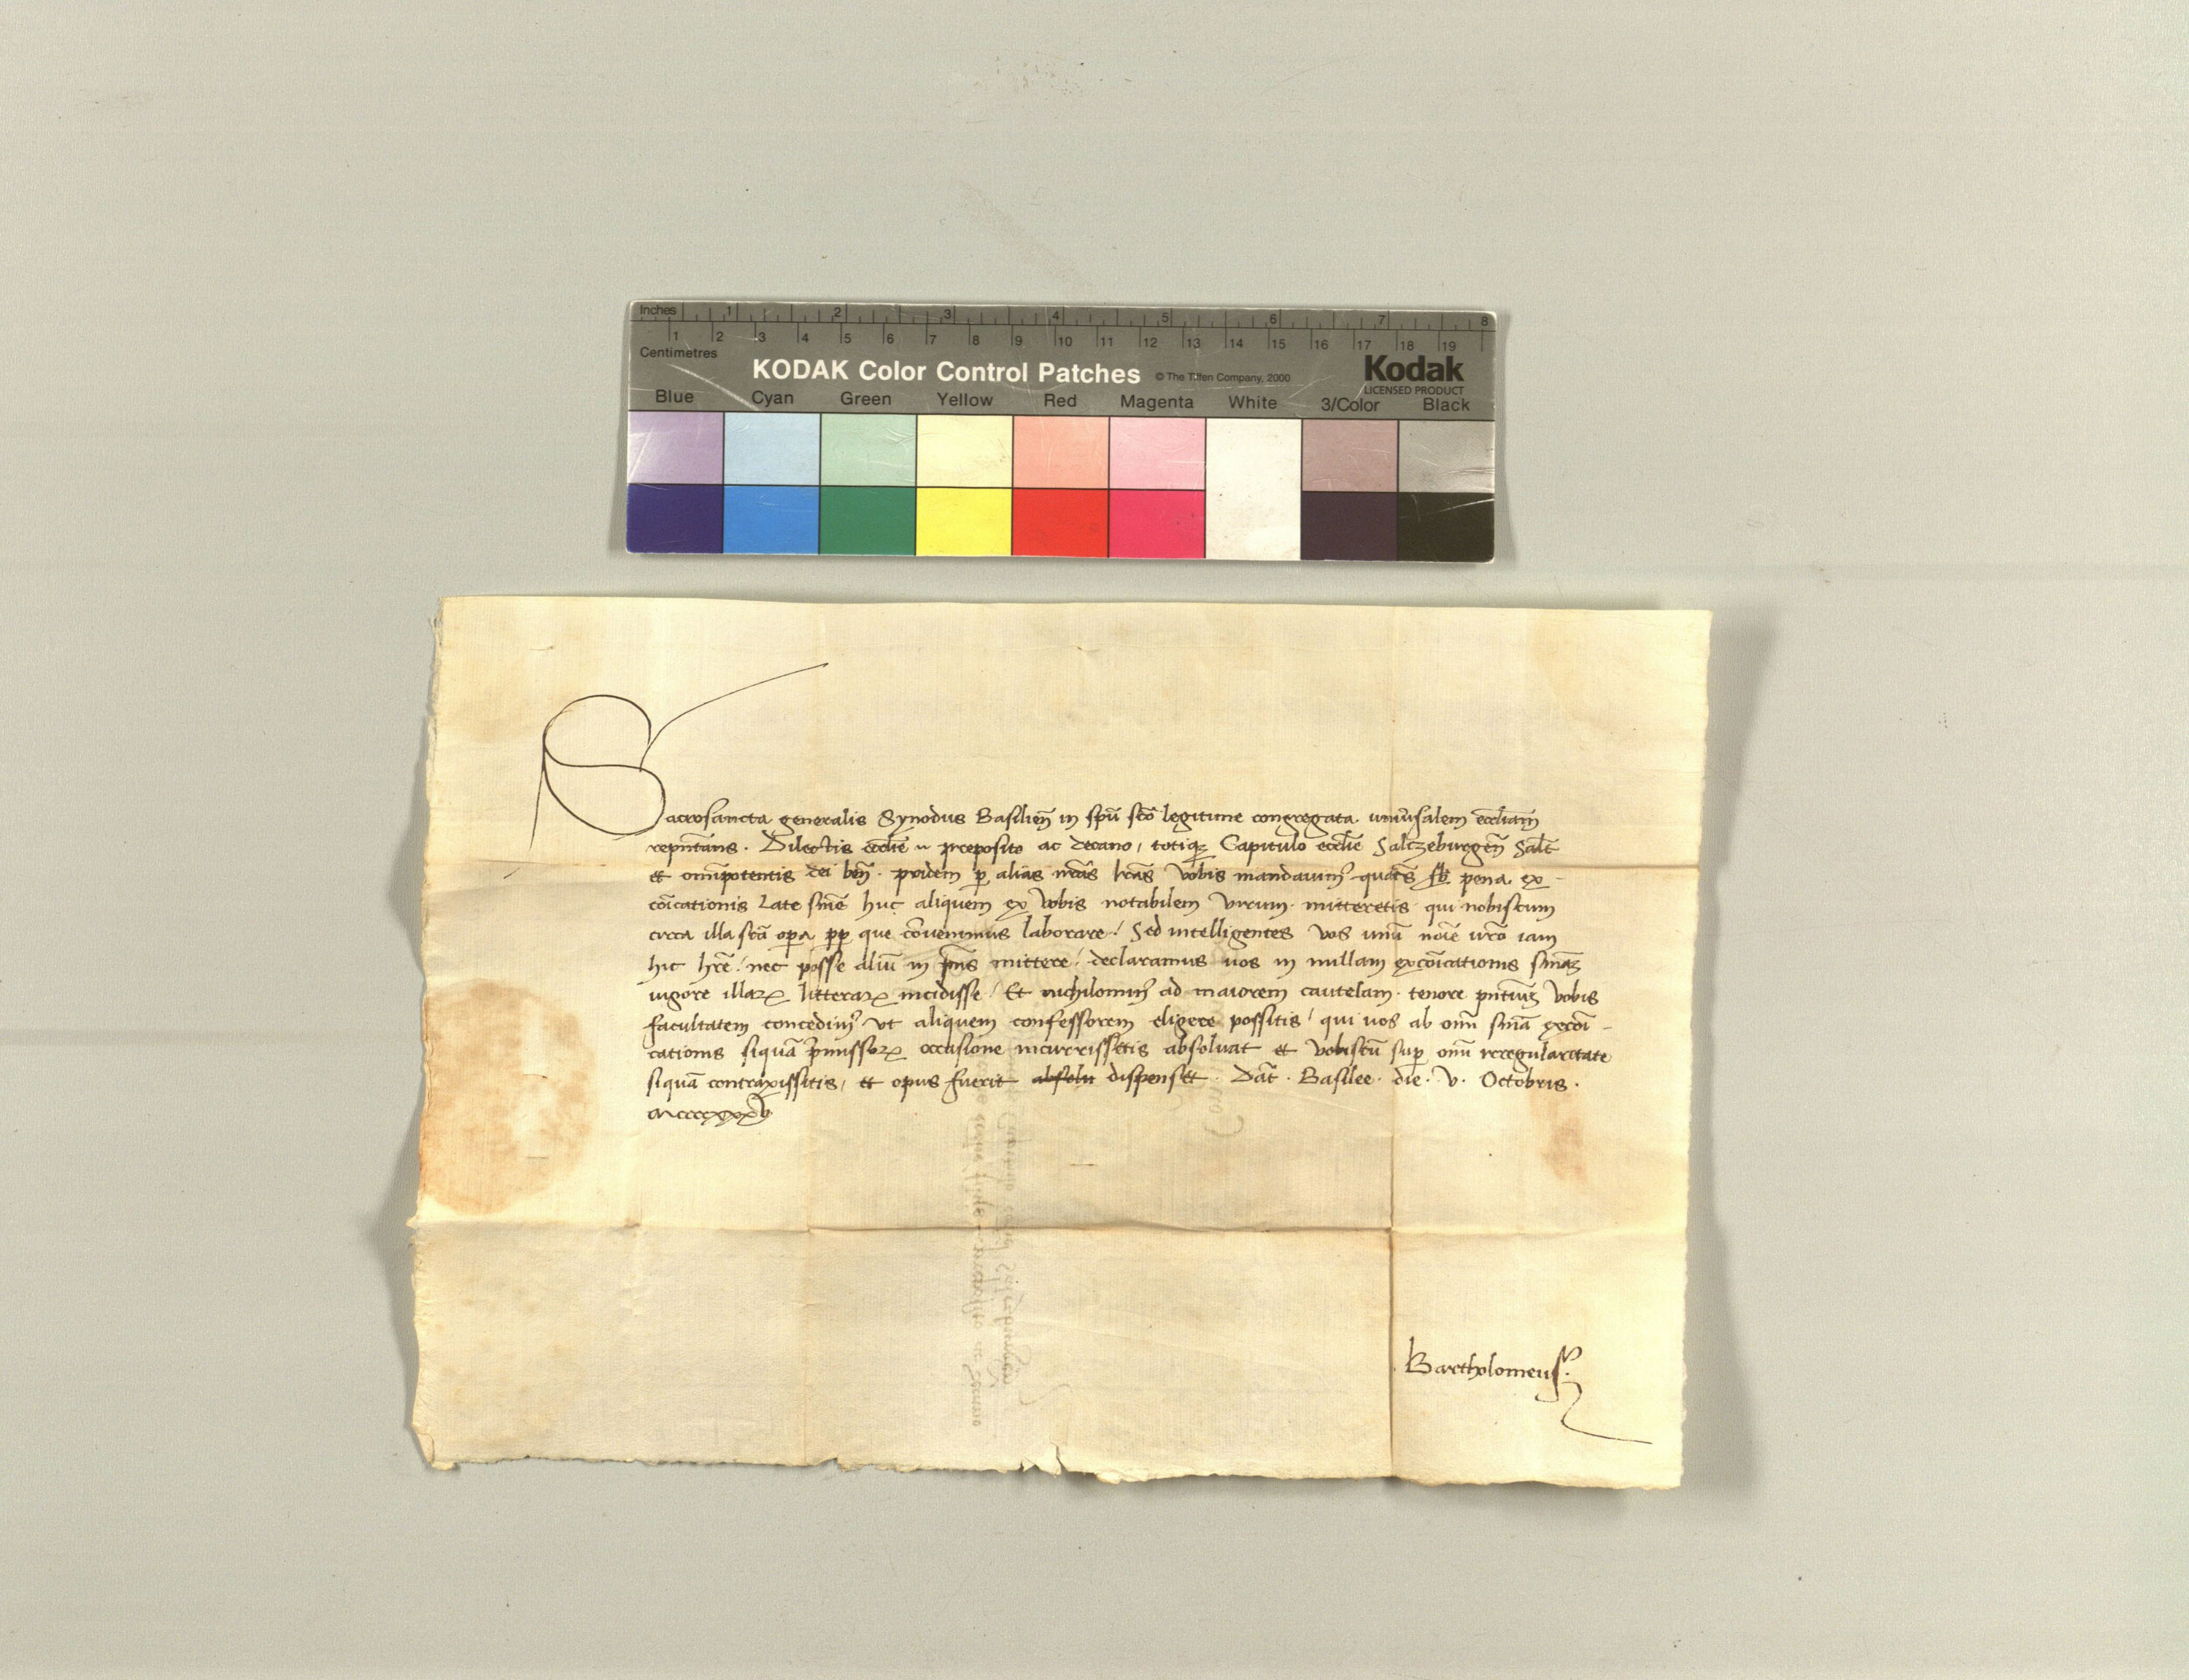 Inches 1 2 3 4 5 6 7 8
1 2 3 4 5 6 7 8 9 10 11 12 13 14 15 16 17 18 19
Centimetres
KODAK Color Control Patches © The Tiffen Company, 2000 Kodak
LICENSED PRODUCT
Blue Cyan Green Yellow Red Magenta White 3/Color Black
Sacrosancta generalis Synodus Basilieñ in spū scō legitime congregata. univ̄salem eccl̄iam
rep̄ntans. Dilectis eccl̄ie preposito ac decano, totiqꝫ Capitulo eccl̄ie Salczeburgeñ Salt̄
et omīpotentis dei beñ. pridem ꝑ alias nr̄as lrās vobis mandavimꝰ quat̄s sb̄ pena ex-
cōicationis late sn̄ie huc aliquem ex vobis notabilem virum mitteretis qui nobiscum
circa illa scā oꝑa ꝓp que cōvenimus laboraret / Sed intelligentes vos unū noīe vr̄o iam
hic hr̄e / nec posse aliū in p̄ns mittere / declaramus vos in nullam excōicationis sn̄iaꝫ
vigore illaꝝ litteraꝝ incidisse / Et nichilominꝰ ad maiorem cautelam. tenore pn̄tiuꝫ vobis
facultatem concedimꝰ ut aliquem confessorem eligere possitis / qui vos ab omī sn̄ia excōi-
cationis siquā p̄missoꝝ occasione incurrissetis absolvat et vobiscū suꝑ omī irregularitate
siquā contraxissitis, et opus fuerit absolu dispenset. Dat̄. Basilee. die. v. Octobris.
Mccccxxxv
Bartholomeus